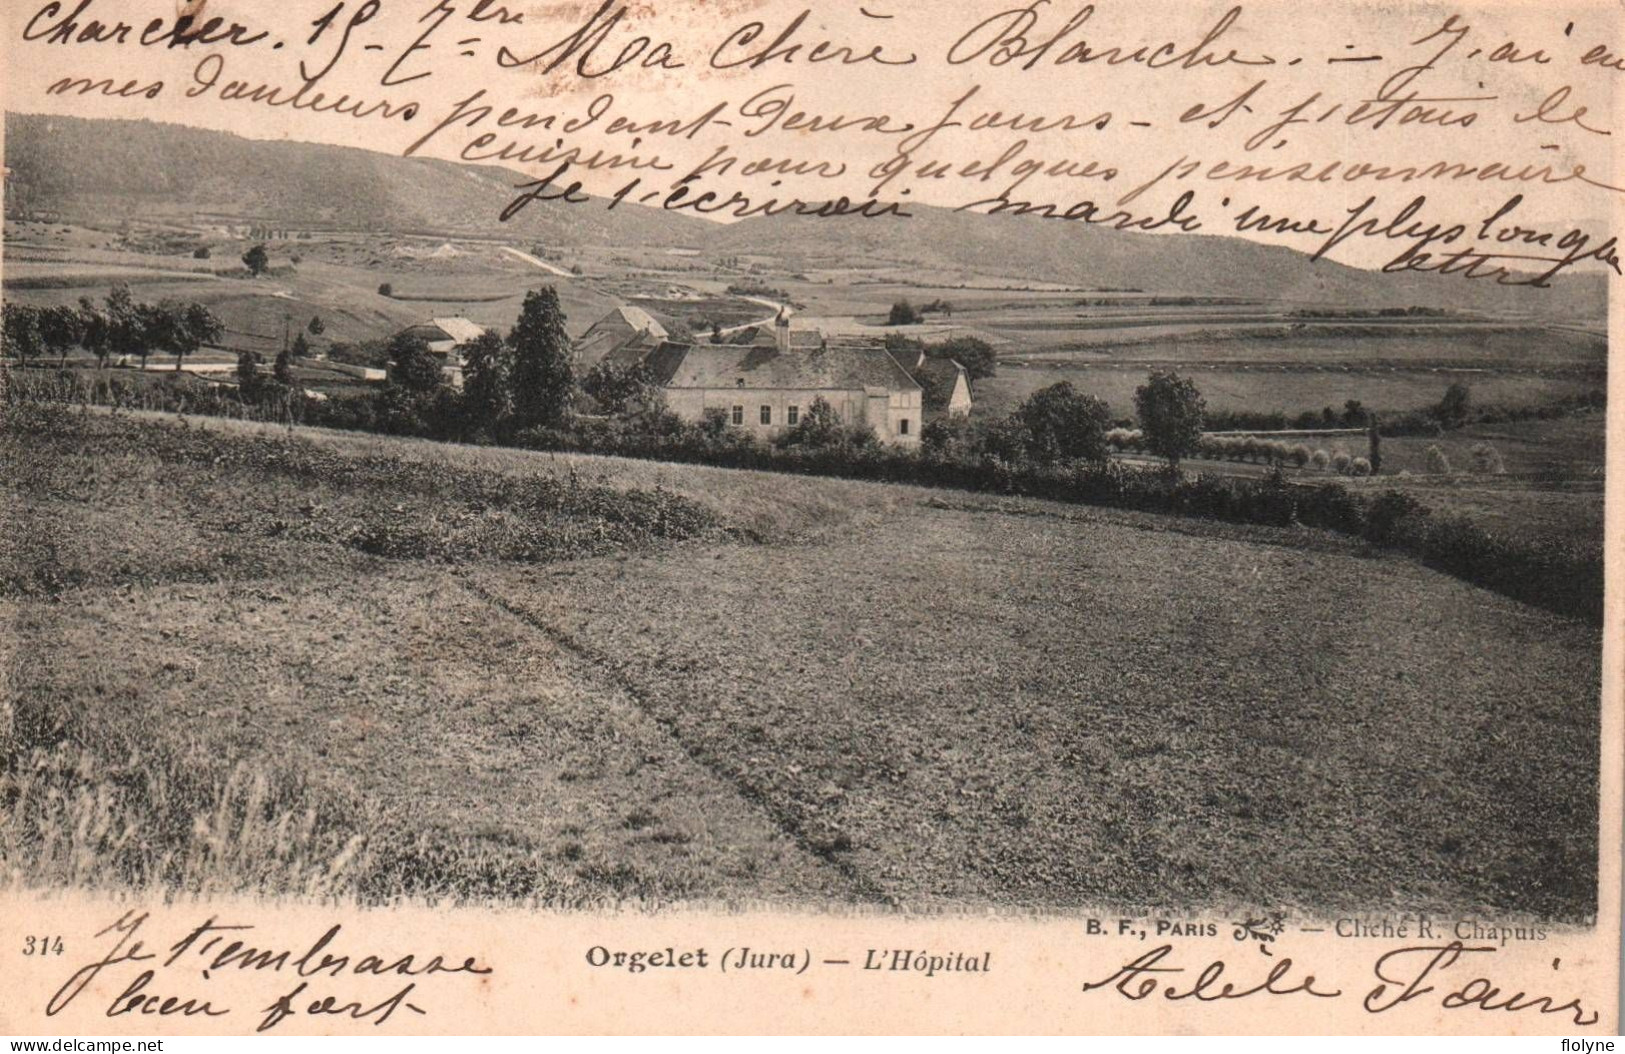 charcier. 15 - 7bre Ma Chère Blanche. — J'ai eu
mes douleurs pendant deux jours - et j'étais de
cuisine pour quelques pensionnaire
Je t'écrirai mardi une plus longue
lettre
314
Je t'embrasse
bien fort
Orgelet (Jura) — L'Hôpital
B. F., PARIS — Cliché R. Chapuis
Adèle
flolyne